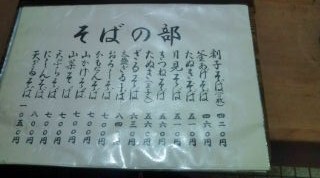 そばの部
割子そば(三枚) 四二〇円
釜あげそば 四六〇円
たぬきそば 五一〇円
月見そば 五一〇円
きつねそば 五六〇円
たぬきそば 五六〇円
ざるそば 六三〇円
八四〇円
おろしそば 七〇〇円
かもなんそば 七〇〇円
山かけそば 七〇〇円
山菜そば 七〇〇円
天ぷらそば 七〇〇円
にしんそば 八〇〇円
天ざるそば 一〇五〇円